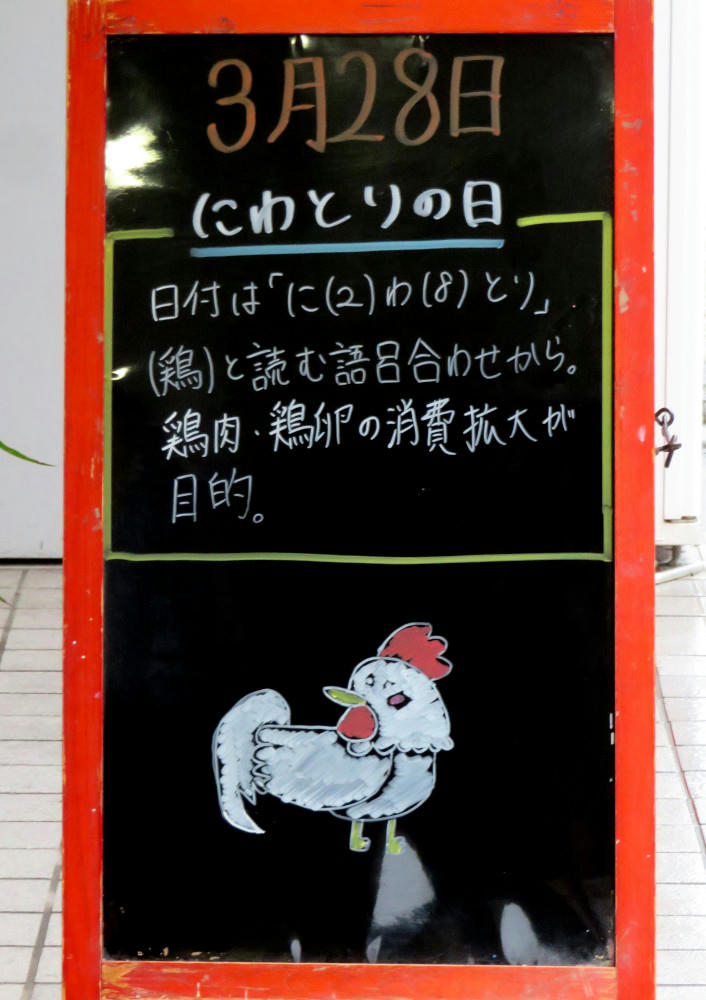 3月28日
にわとりの日
日付は「に(2)わ(8)とり」
(鶏)と読む語呂合わせから。
鶏肉・鶏卵の消費拡大が
目的。